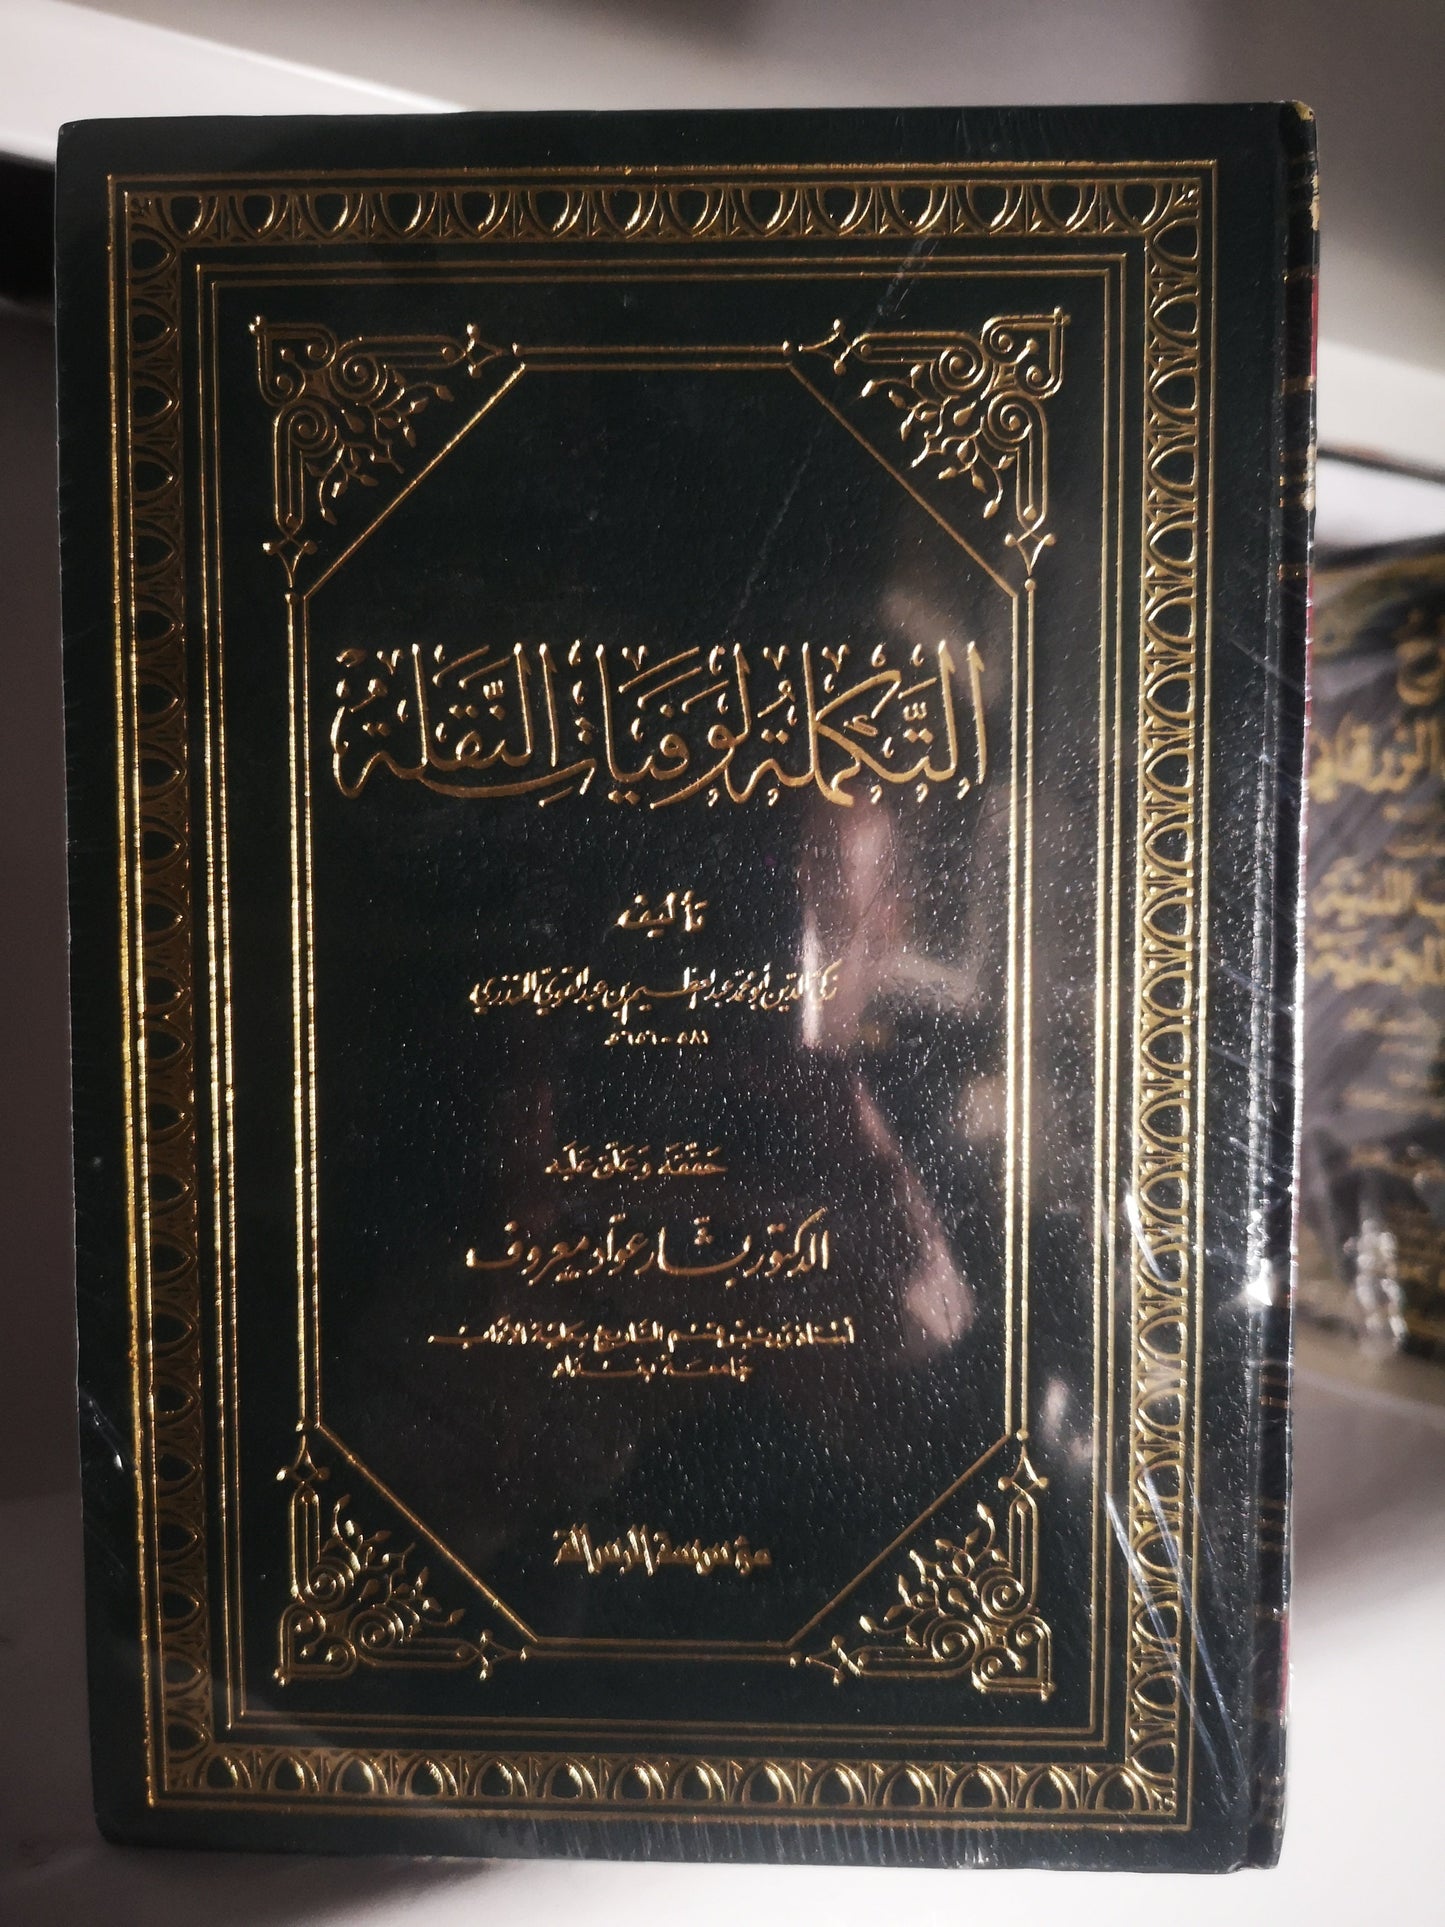 التَّكملة لوَفيَات النَّقَلَة
تأليف
زكي الدين أبو محمد عبد العظيم بن عبد القوي المنذري
٥٨١ - ٦٥٦ هـ
حَقّقَهُ وَعَلّق عَلَيه
الدكتور بشّار عوّاد معروف
أستاذ ورئيس قسم التاريخ بكلية الآداب
جامعة بغداد
مؤسسة الرسالة